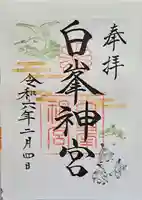 奉拝
白峯神宮
令和六年二月四日